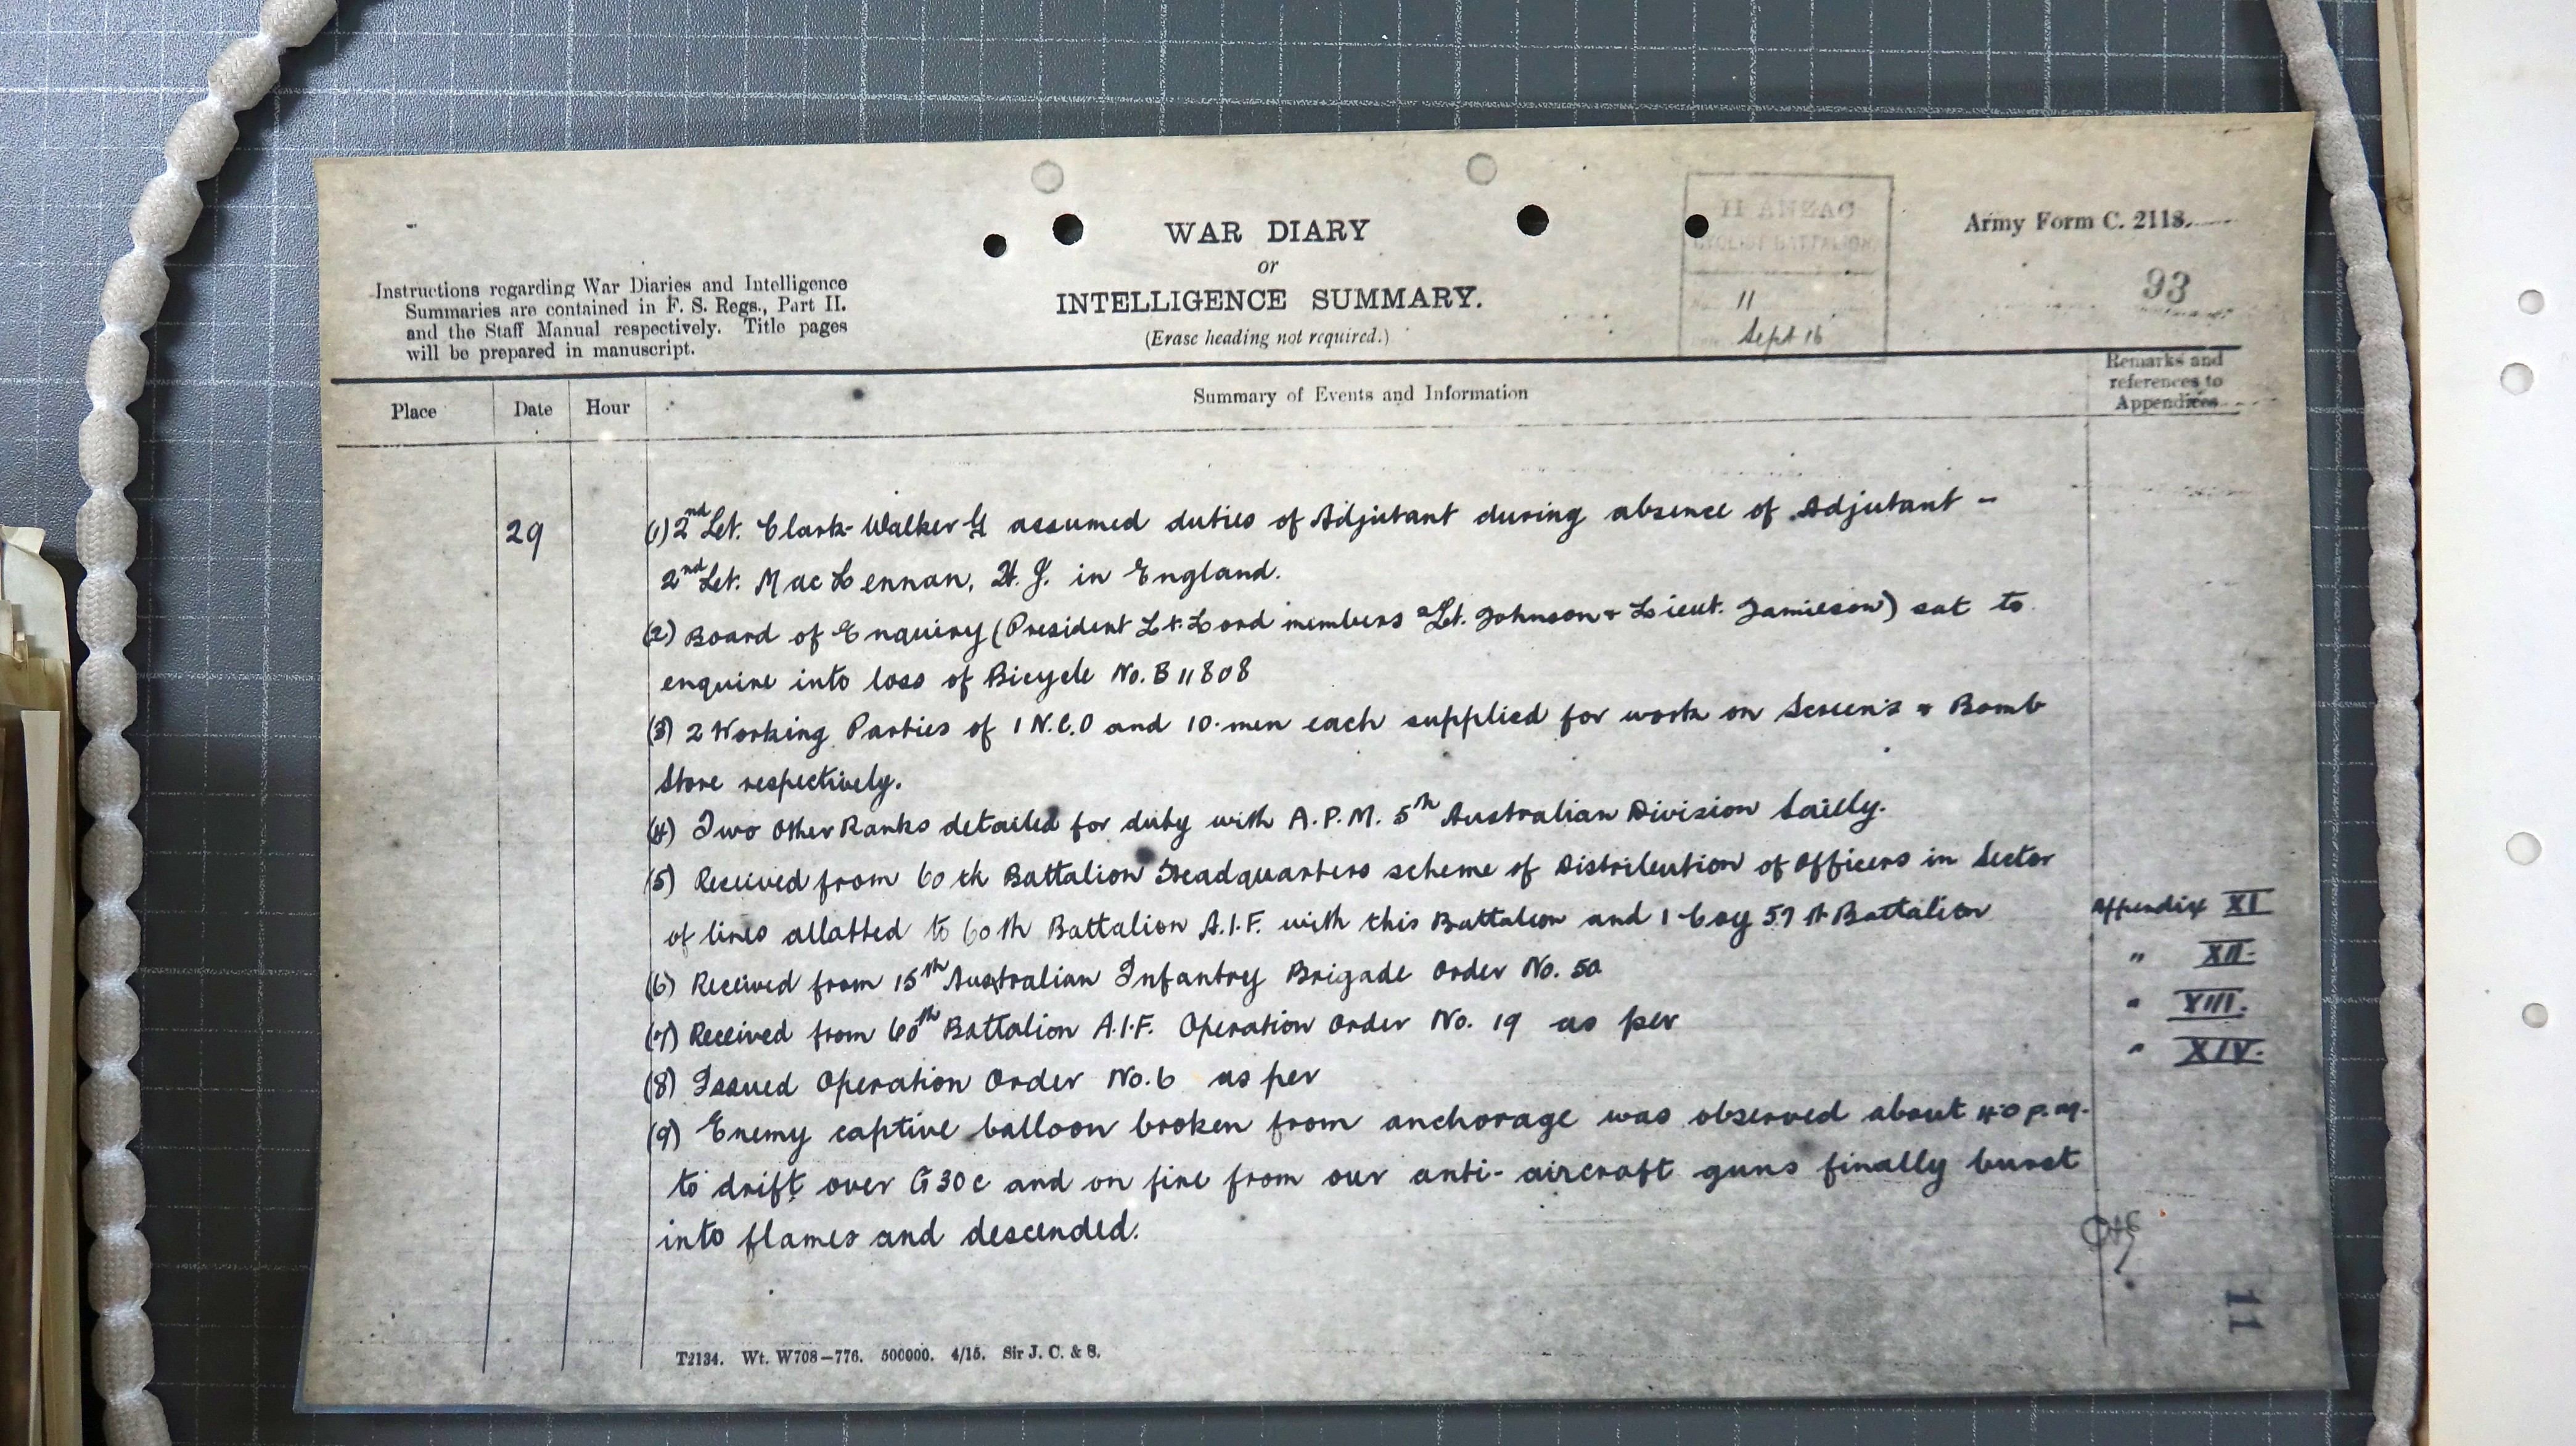 WAR DIARY
or
INTELLIGENCE SUMMARY.
(Erase heading not required.)
Instructions regarding War Diaries and Intelligence
Summaries are contained in F. S. Regs., Part II.
and the Staff Manual respectively. Title pages
will be prepared in manuscript.
II ANZAC
CYCLIST BATTALION
No. 11
Date Sept 16
Army Form C. 2118.
93
Place
Date
Hour
Summary of Events and Information
Remarks and
references to
Appendices
29
(1) 2nd Lt. Clark-Walker G assumed duties of Adjutant during absence of Adjutant -
2nd Lt. MacLennan, H. J. in England.
(2) Board of Enquiry (President Lt. Lord members 2Lt. Johnson & Lieut. Jamieson) sat to
enquire into loss of Bicycle No. B 11808
(3) 2 Working Parties of 1 N.C.O and 10 men each supplied for work on Screens & Bomb
Store respectively.
(4) Two Other Ranks detailed for duty with A.P.M. 5th Australian Division Sailly.
(5) Received from 60th Battalion Headquarters scheme of Distribution of Officers in Sector
of lines allotted to 60th Battalion A.I.F. with this Battalion and 1 Coy 57th Battalion
Appendix XI
(6) Received from 15th Australian Infantry Brigade Order No. 50
" XII.
(7) Received from 60th Battalion A.I.F. Operation Order No. 19 as per
" XIII.
(8) Issued Operation Order No. 6 as per
" XIV.
(9) Enemy captive balloon broken from anchorage was observed about 4.0 p.m.
to drift over G 30 c and on fire from our anti-aircraft guns finally burst
into flames and descended.
11
T2134. Wt. W708-776. 500000. 4/15. Sir J. C. & S.